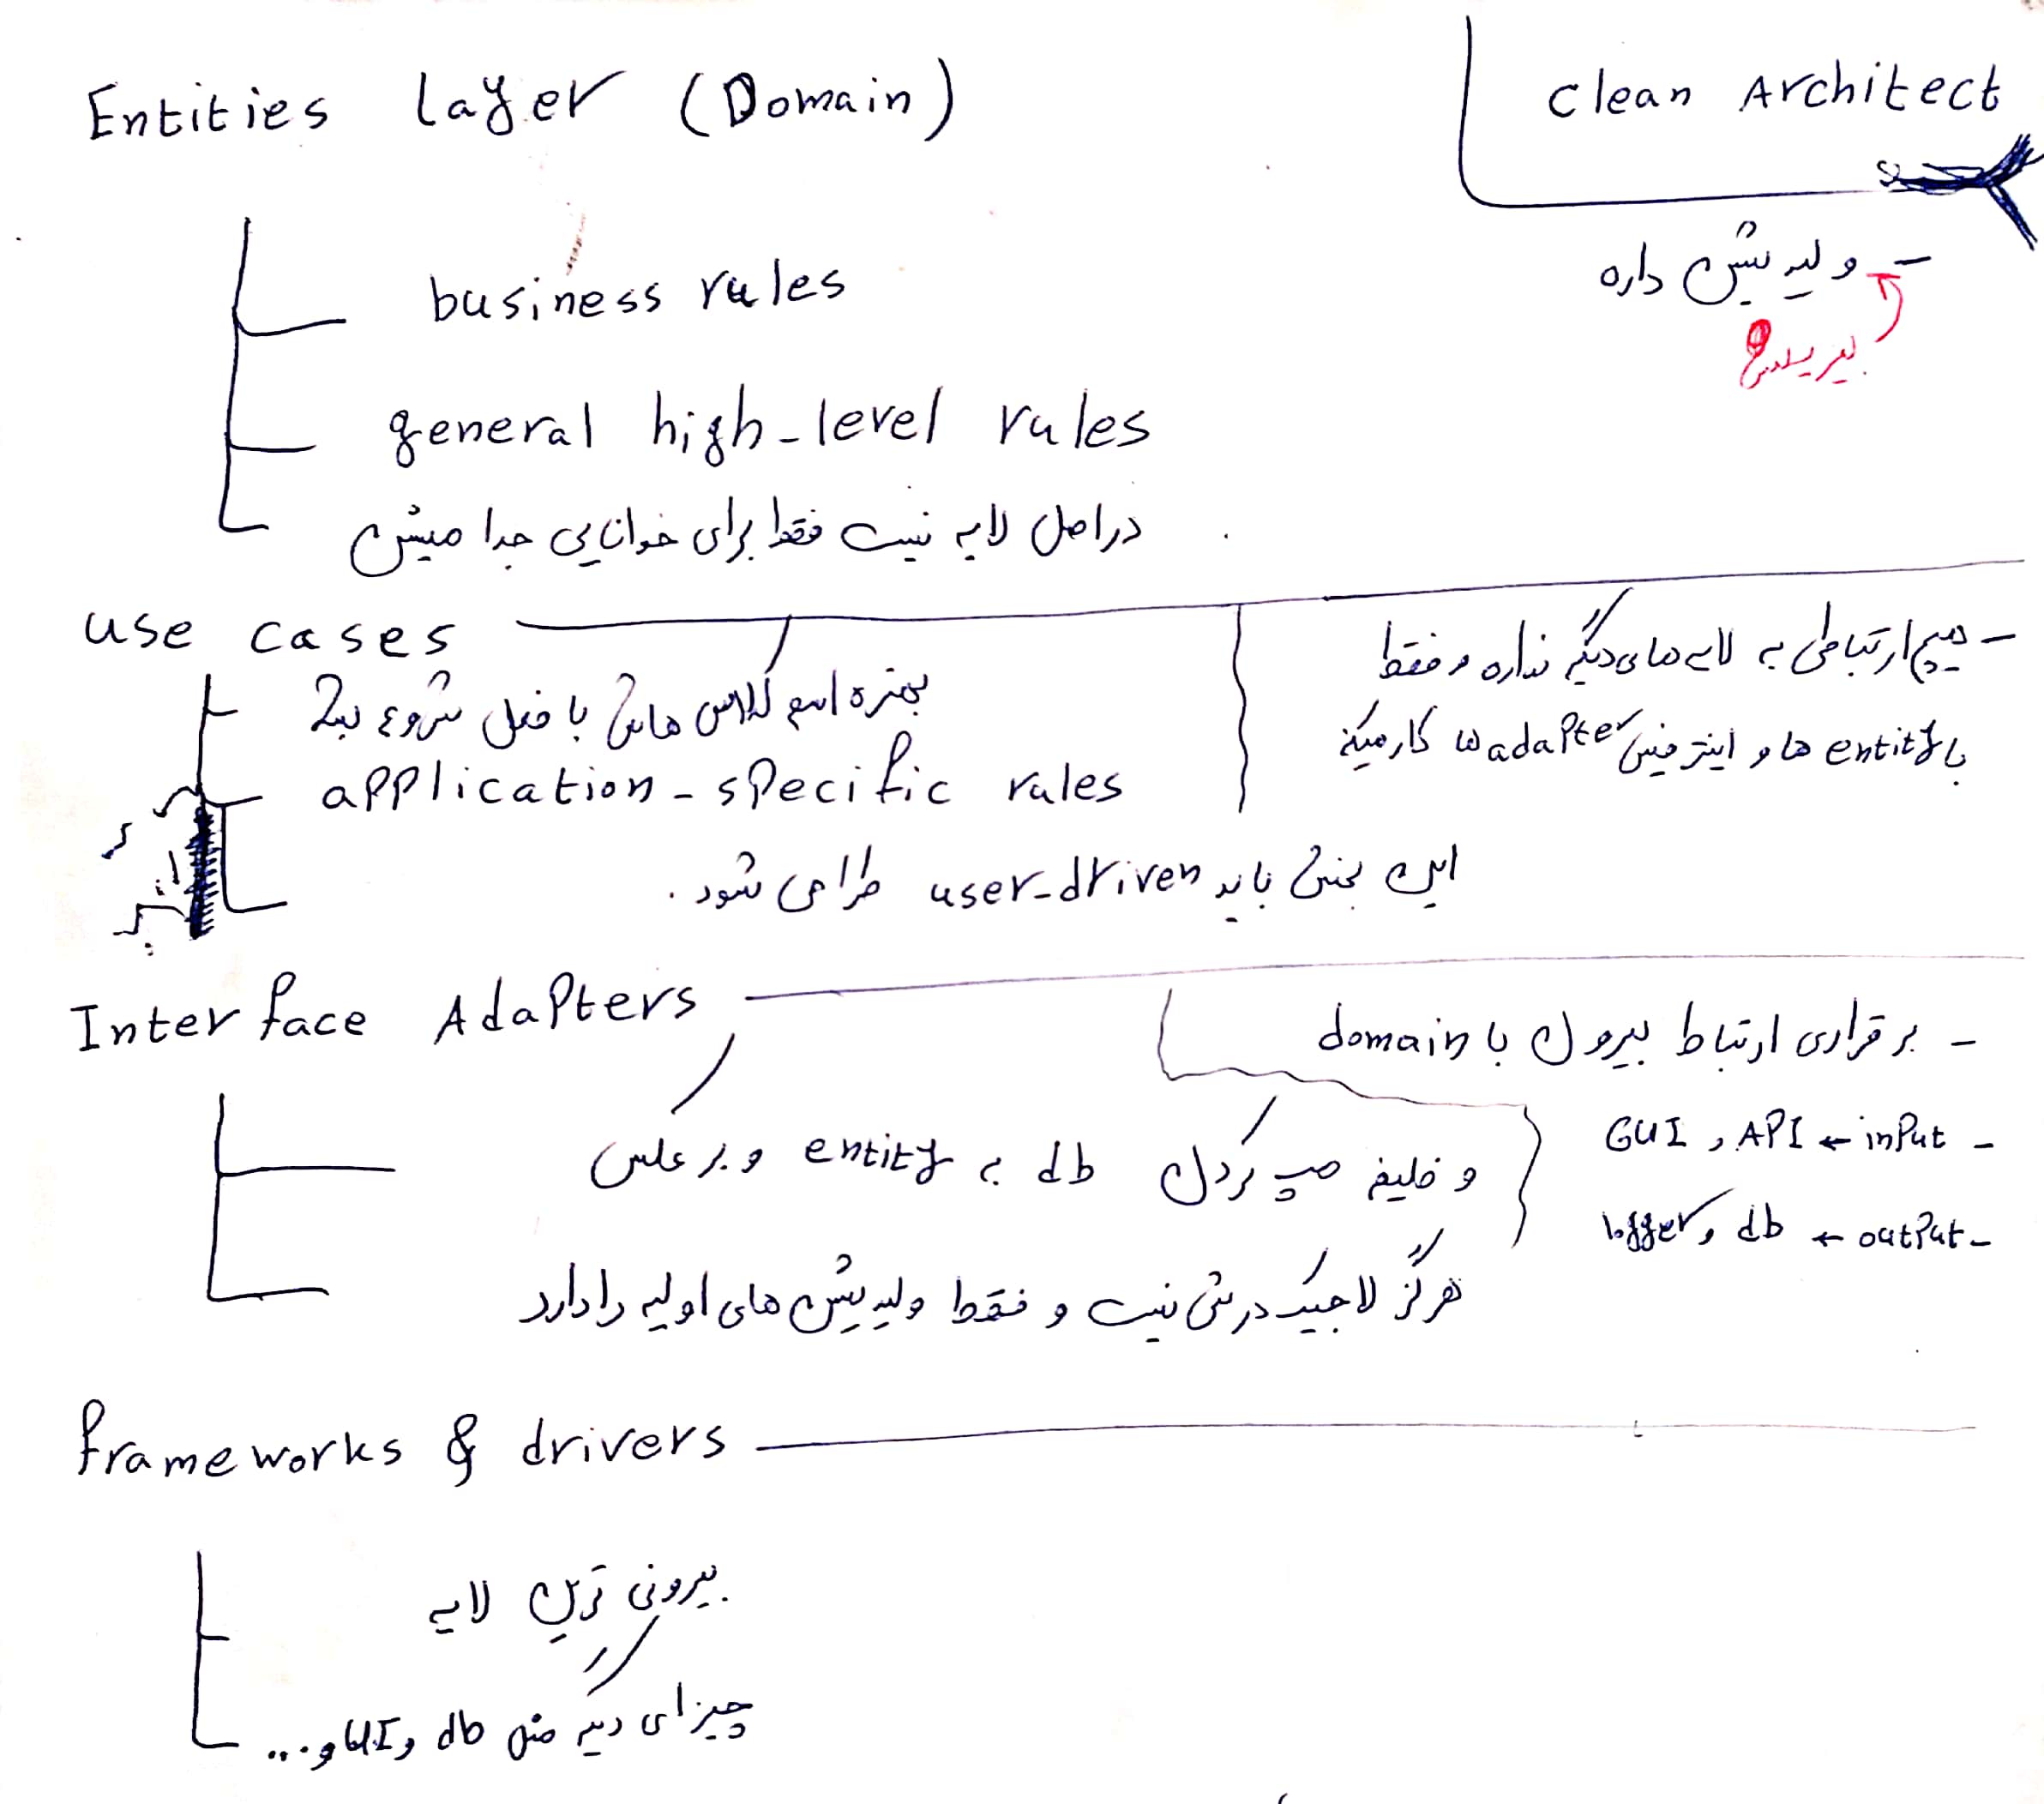 Clean Architect
Entities Layer (Domain)
- ولیدیشن داره
business rules
general high-level rules
در اصل لایه نیست فقط برای خوانایی جدا میشن
use cases
- هیچ ارتباطی به لایه های دیگه نداره و فقط
با entity ها و اینترفیس adapter ها کار میکنه
بهتره اسم کلاس هاش با فعل شروع بشه
application-specific rules
این بخش باید user-driven طراحی شود.
Interface Adapters
- برقراری ارتباط بیرون با domain
- input ← API و GUI
- output ← db و logger
وظیفه مپ کردن db به entity و برعکس
هرگز لاجیک درش نیست و فقط ولیدیشن های اولیه را دارد
frameworks & drivers
بیرونی ترین لایه
چیزای دیگه مثل db و UI و ...